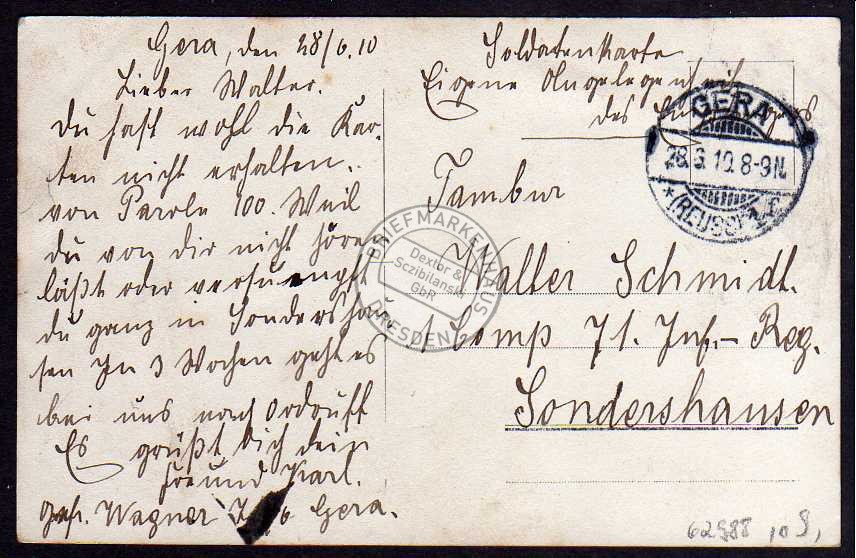 Gera, den 28/6.10
Lieber Walter.
Du hast wohl die Kar-
ten nicht erhalten.
von Parole 100. Weil
du von dir nicht hören
läßt oder
du ganz in Sondershau-
sen In 3 Wochen geht es
bei uns nach Ordruff
Es grüßt Dich dein
Freund Karl.
Wagner Gera.
Soldatenkarte
Eigene Angelegenheit
des Empfängers
GERA
28.6.10. 8-9N.
* (REUSS) * f
Tambur
Walter Schmidt.
1 Comp 71. Inf.- Reg.
Sondershausen
BRIEFMARKENHAUS
Dextor &
Sczibilanski
GbR
DRESDEN
62988 10 9,